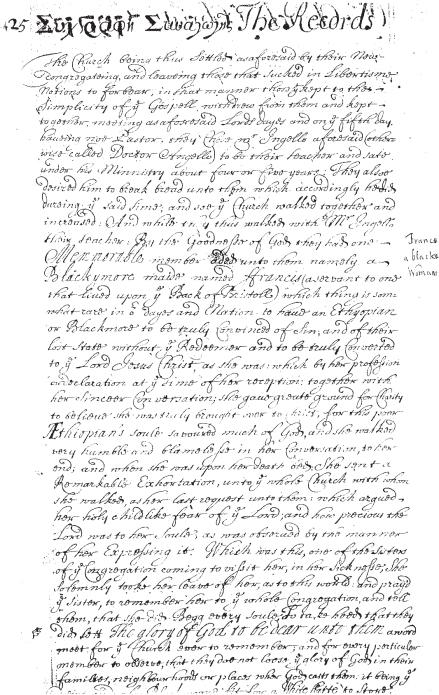 425 The Records
The Church being thus Settled as aforesaid by their New
Congregateing, and leaveing those that sucked in Libertisme
Notions to forbear, in that manner they kept to the
Simplicity of yͤ Gospell, withdrew from them and kept
together, meeting as aforesaid Lords dayes and on yͤ fifth day
haveing noe Pastor. they Chose Mr. Ingello aforesaid (other
wise called Doctor Ingello) to be their teacher and sate
under his Ministry about four or five years. They also
desired him to break bread unto them which accordingly he did
dureing yͤ said time, and soe yͤ Church walked together and
increased: And while they thus walked with Mr Ingello
their teacher; By the Goodnesse of God they had one
Memorable member added unto them namely a
Blackymore maide named ffrancis (a servant to one
that lived upon yͤ Back of Bristoll) which thing is som-
what rare in our dayes and Nation, to have an Ethyopian
or Blackmore to be truly Convinced of Sin; and of their
lost State without yͤ Redeemer and to be truly Converted
to yͤ Lord Jesus Christ, as she was; which by her profession
or declaration at yͤ time of her reception; together with
her Sinceer Conversation; she gave greate ground for Charity
to believe she was truly brought over to Christ, for this poor
Æthiopian's soule savoured much of God, and she walked
very humble and blamelesse in her Conversation, to her
end; and when she was upon her death bed: She sent a
Remarkable Exhortation, unto yͤ whole Church with whom
she walked, as her last request unto them: which argued
her holy childlike fear of yͤ Lord; and how precious the
Lord was to her Soule; as was observed by the manner
of her Expressing it. Which was this, one of the Sisters
of yͤ Congregation coming to vissitt her, in her Sicknesse, She
solemnly tooke her leave of her, as to this world: and pray'd
yͤ Sister, to remember her to yͤ whole Congregation, and tell
them, that she did Begg every soule, To take heed that they
did lett The glory of God to be dear unto them a word
meet for yͤ Church ever to remember; and for every particuler
member to observe, that they doe not loose yͤ glory of God in their
families, neighbourhoods or places where God casts them: it being yͤ
Francis
a blacke
Woman